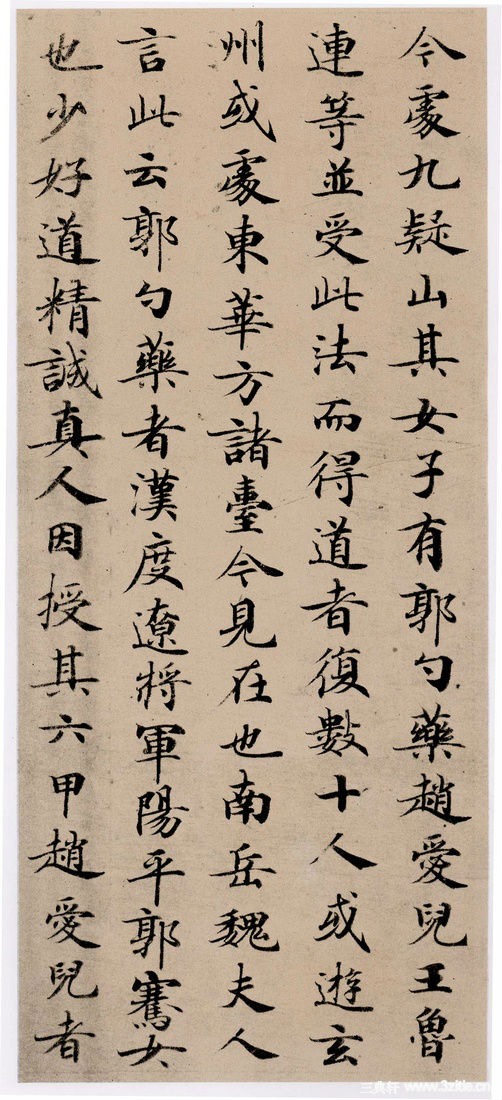 今處九疑山其女子有郭勺藥趙愛兒王魯
連等並受此法而得道者復數十人或遊玄
州或處東華方諸臺今見在也南岳魏夫人
言此云郭勺藥者漢度遼將軍陽平郭騫女
也少好道精誠真人因授其六甲趙愛兒者
三典轩 www.3zitie.cn